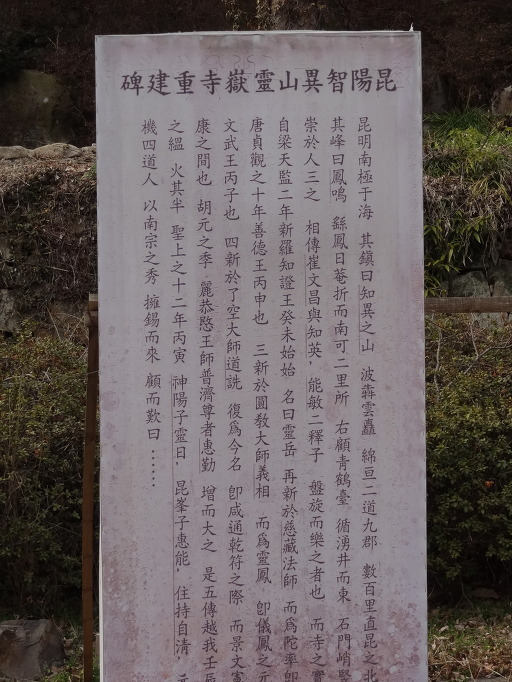 昆陽智異山靈嶽寺重建碑
昆明南極于海 其鎮曰知異之山 波犇雲矗 綿亘二道九郡 數百里直昆之北
其峰曰鳳鳴 繇鳳日菴折而南可二里所 右顧青鶴臺 循湧井而東 石門峭竪
崇於人三之 相傳崔文昌與知英, 能敏二釋子 盤旋而樂之者也 而寺之實
自梁天監二年新羅知證王癸未始始 名曰靈岳 再新於慈藏法師 而爲陀率卽
唐貞觀之十年善德王丙申也 三新於圓教大師義相 而爲靈鳳 卽儀鳳之元
文武王丙子也 四新於了空大師道詵 復爲今名 卽咸通乾符之際 而景文憲
康之間也 胡元之季 麗恭愍王師普濟尊者惠勤 增而大之 是五傳越我壬辰
之縕 火其半 聖上之十二年丙寅 神陽子靈日, 昆峯子惠能, 住持自清,
機四道人 以南宗之秀 擁錫而來 顧而歎曰 ......